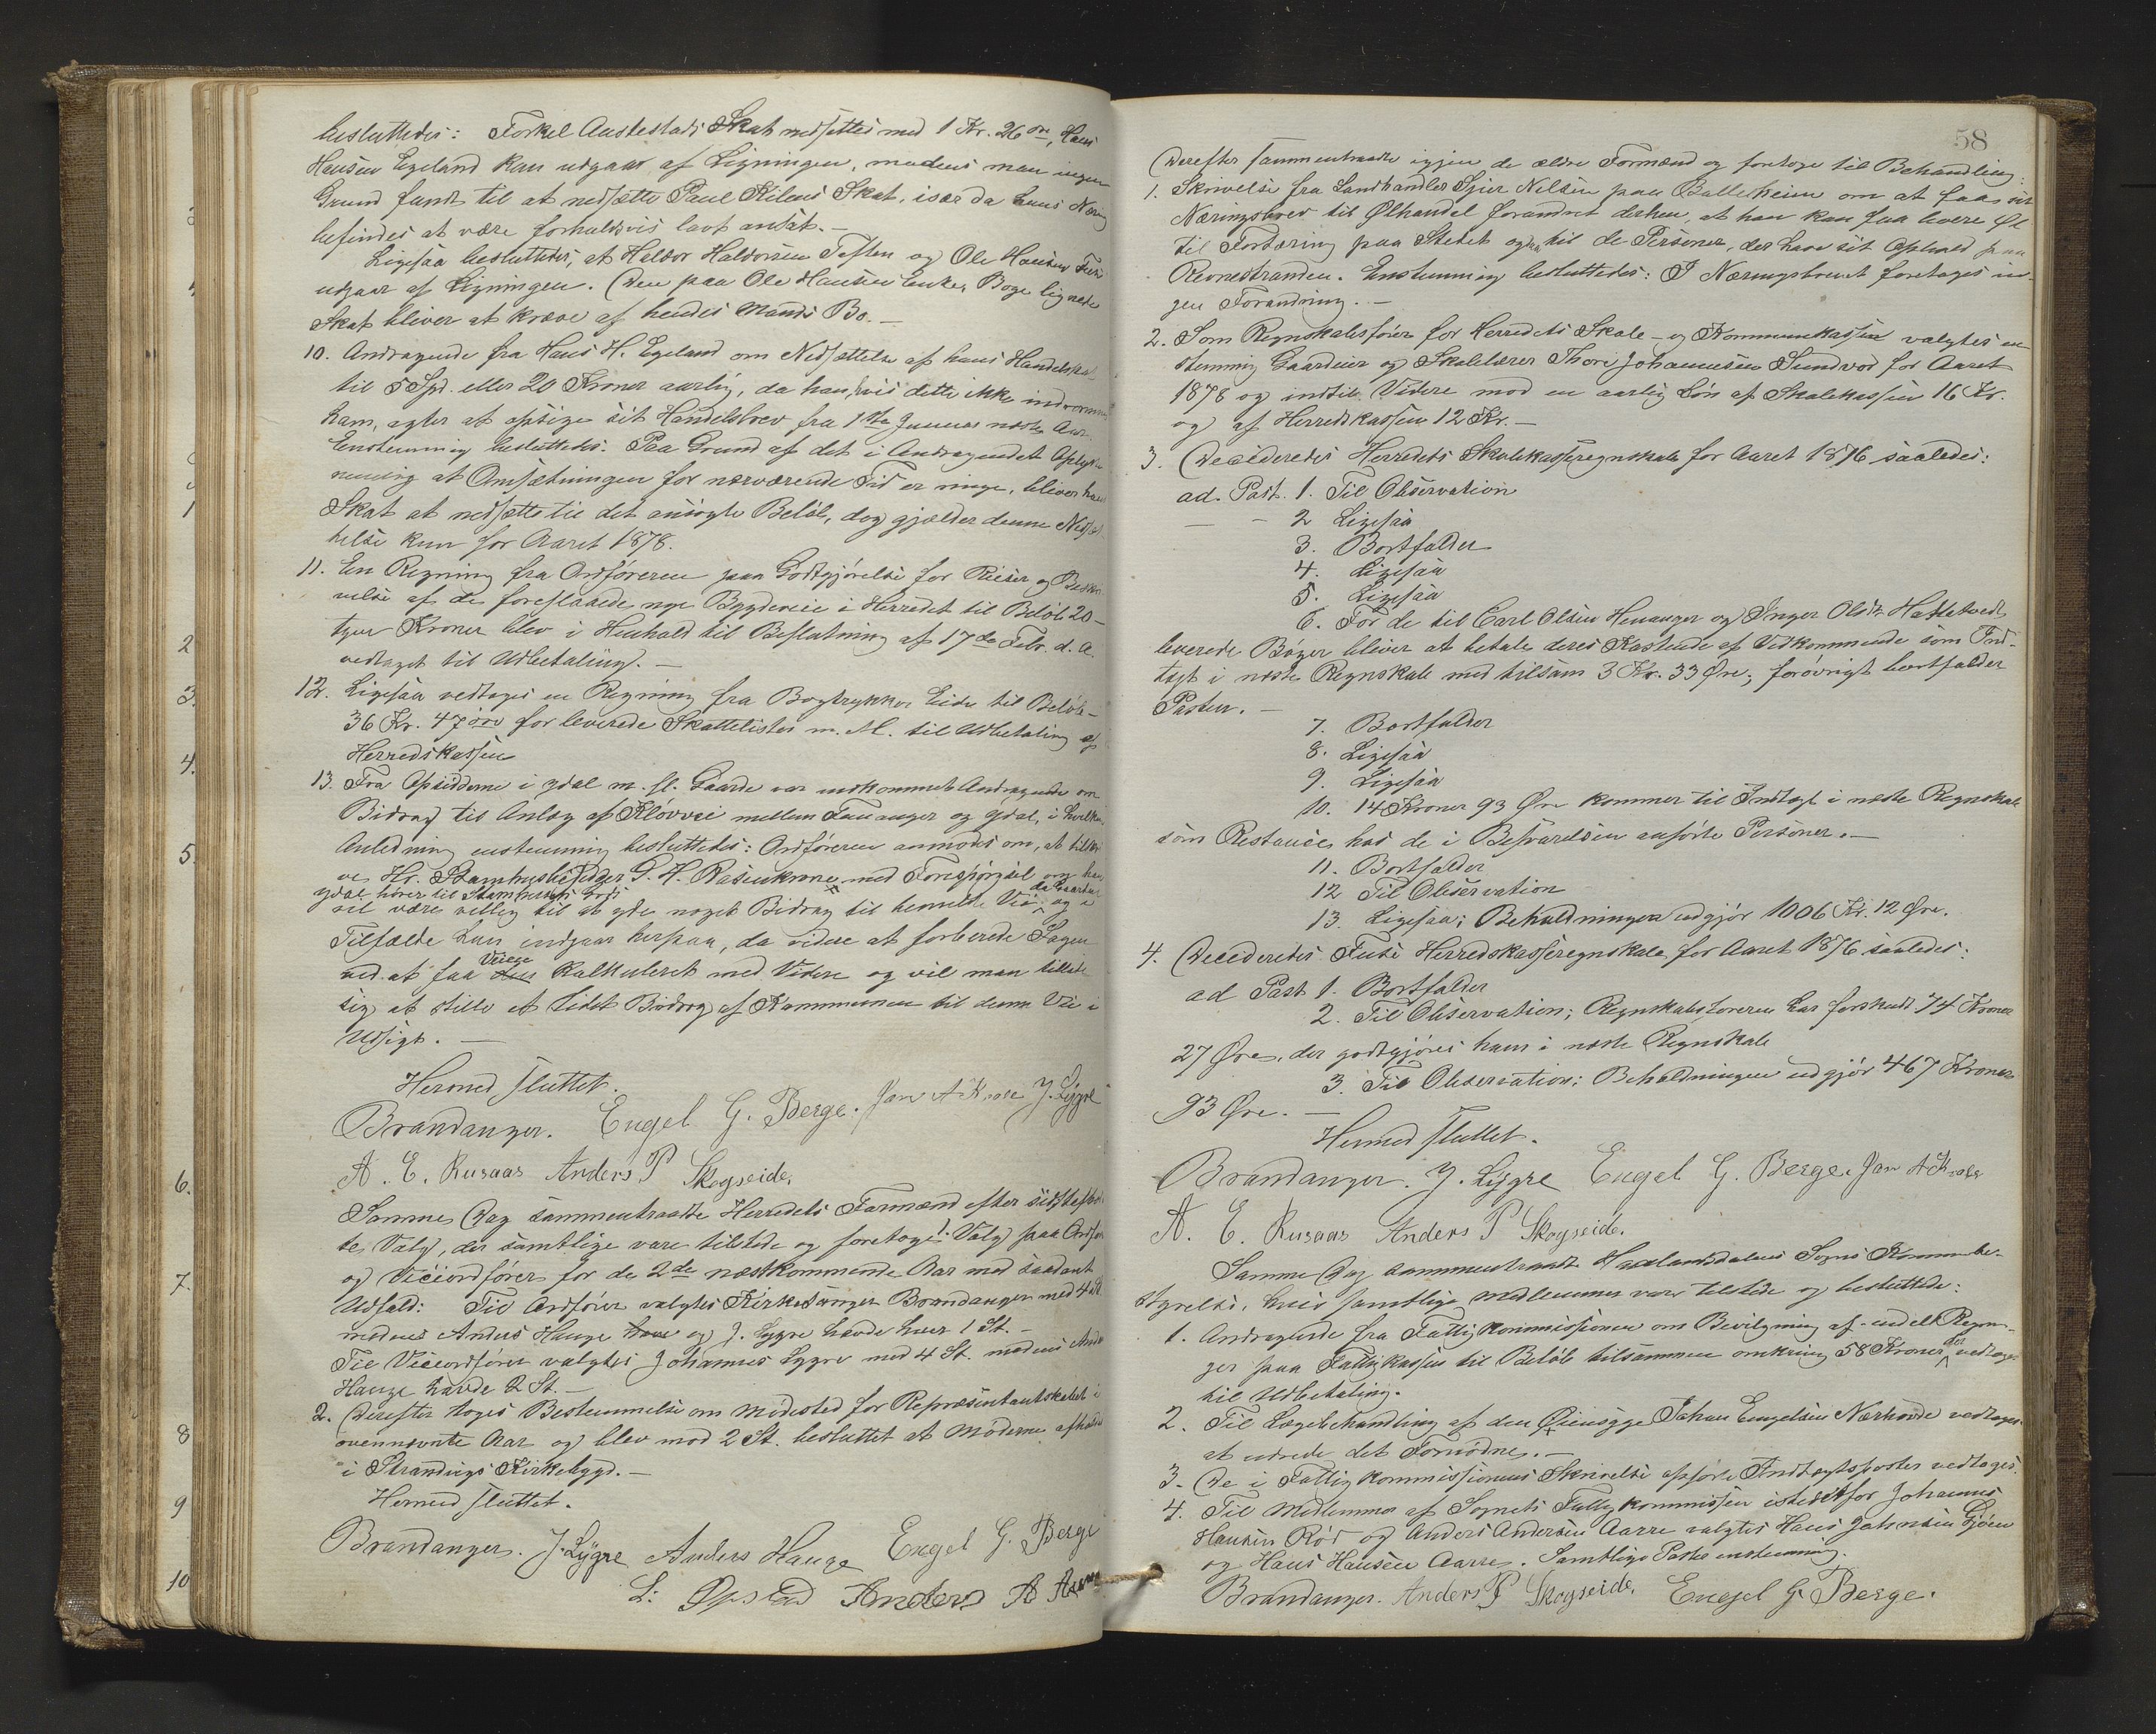 besluttedes: Torkel Austestads Skat nedsættes med 1 Kr. 26 øre, Hans
Hansen Egeland kan udgaar af Ligningen, medens man ingen
Grund fandt til at nedsætte Paul Kilens Skat, især da hans Næring
befindes at være forholdsvis lavt ansat.—
Ligesaa besluttedes, at Heldor Haldorsen Teften og Ole Hansen Fuse
udgaar af Ligningen. Den paa Ole Hansen Enke, Boge lignede
Skat bliver at kræve af hendes Mands Bo.—
10. Andragende fra Hans H. Egeland om Nedsættelse af hans Handelsskat
til 5 Spd. eller 20 Kroner aarlig, da han, hvis dette ikke indrømmes
ham, agter at opsige sit Handelsbrev fra 1ste Januar næste Aar.
Enstemmig besluttedes: Paa Grund af det i Andragendet Oplyste
nemlig at Omsætningen for nærværende Tid er ringe, bliver hans
Skat at nedsætte til det ansøgte Beløb, dog gjælder denne Nedsæt-
telse kun for Aaret 1878.
11. En Regning fra Ordføreren paa Godtgjørelse for Reiser og Beskri-
velse af de foreslaaede nye Bygdeveie i Herredet til Beløb 20—
tyve Kroner blev i Henhold til Beslutning af 17de Febr. d. A.
vedtaget til Udbetaling.—
12. Ligesaa vedtages en Regning fra Bogtrykker Eide til Beløb—
36 Kr. 47 øre for leverede Skattelister m. M. til Udbetaling af
Herredskassen
13. Fra Opsidderne i Ydal m. fl. Gaarde var indkommet Andragende om
Bidrag til Anlæg af Kløvvei mellem Eunanger og Ydal, i hvilken
Anledning enstemmig besluttedes: Ordføreren anmodes om, at tilskri
ve Hr. Stamhusbesidder G. H. Rosenkrone med Forespørgsel om han
Ydal hører til Stamhusets Gods
vil være villig til at yde noget Bidrag til bemeldte Vei, og i
Tilfælde han indgaar herpaa, da videre at forberede Sagen
ved at faa Veien kalkuleret med Videre og vil man tillade
sig at stille et lidet Bidrag af Kommunen til denne Vei i
Udsigt.—
Hermed sluttet.
Brandanger. Engel G. Berge. Jan A Kvale J. Lygre
A. E. Rusaas Anders P Skogseide.
Samme Dag sammentraadte Herredets Formænd efter sidstafhold
te Valg, der samtlige vare tilstede og foretoges 1. Valg paa Ordfører
og Viceordfører for de 2de næstkommende Aar med saadant
Udfald: Til Ordfører valgtes Kirkesanger Brandanger med 4 St.
medens Anders Hauge og J. Lygre havde hver 1 St.—
Til Viceordfører valgtes Johannes Lygre med 4 St. medens Anders
Hauge havde 2 St.—
2. Derefter toges Bestemmelse om Mødested for Repræsentantskabet i
ovennævnte Aar og blev mod 2 St. besluttet at Møderne afholdes
i Strandvigs Kirkebygd.—
Hermed sluttet.
Brandanger. J. Lygre Anders Hauge Engel G. Berge
L: Øpstad Anders A
58
Derefter sammentraadte igjen de ældre Formænd og foretoge til Behandling:
1. Skrivelse fra Landhandler Sjur Nilsen paa Balleheim om at faa sit
Næringsbrev til Ølhandel forandret derhen, at han kan faa levere Øl
til Fortæring paa Stedet ogsaa til de Personer, der have sit Ophold paa
Revnestranden. Enstemmig besluttedes: I Næringsbrevet foretages in-
gen Forandring.—
2. Som Regnskabsfører for Herredets Skole- og Kommunekasse valgtes en
stemmig Gaardeier og Skolelærer Thore Johannesen Sundvor for Aaret
1878 og indtil Videre mod en aarlig Løn af Skolekassen 16 Kr.
og af Herredskassen 12 Kr.—
3. Decideredes Herredets Skolekasseregnskab for Aaret 1876 saaledes:
ad. Post. 1. Til Observation
— - 2 Ligesaa
3. Bortfalder
4. Ligesaa
5. Ligesaa
6. For de til Carl Olsen Henanger og Inger Olsdr Hatletvedt
leverede Bøger bliver at betale deres Kostende af Vedkommende som Ind-
tægt i næste Regnskab med tilsam 3 Kr. 33 Øre; forøvrigt bortfalder
Posten.—
7. Bortfalder
8. Ligesaa
9. Ligesaa
10. 14 Kroner 93 Øre kommer til Indtægt i næste Regnskab
som Restance hos de i Besvarelsen anførte Personer.—
11. Bortfalder
12 Til Observation
13. Ligesaa; Beholdningen udgjør 1006 Kr. 12 Øre.
4. Decideredes Fuse Herredskasseregnskab for Aaret 1876 saaledes:
ad Post 1. Bortfalder
2. Til Observation; Regnskabsføreren har forskudt 74 Kroner
27 Øre, der godtgjøres ham i næste Regnskab
3. Til Observation; Beholdningen udgjør 467 Kroner
93 Øre.—
Hermed sluttet.
Brandanger. J. Lygre Engel G. Berge. Jan A Kvale
A. E. Rusaas Anders P Skogseide.
Samme Dag sammentraadte Haalandsdalens Sogns Kommunebe-
styrelse, hvis samtlige Medlemmer vare tilstede og besluttede:
1. Andragende fra Fattigkommissionen om Bevilgning af endelt Regnin-
ger paa Fattigkassen til Beløb tilsammen omkring 58 Kroner der vedtages
til Udbetaling.
2. Til Lægebehandling af den Øiensyge Johan Engelsen Nærhovde vedtages
at udrede det Fornødne.—
3. De i Fattigkommissionens Skrivelse opførte Indtægtsposter vedtages.
4. Til Medlemmer af Sognets Fattigkommission istedetfor Johannes
Hansen Rød og Anders Andersen Aarre valgtes Hans Johnsen Gjøen
og Hans Hansen Aarre. Samtlige Poster enstemmig.
Brandanger. Anders P Skogseide. Engel G. Berge.
2
3.
4.
5.
6.
7.
8
9
10